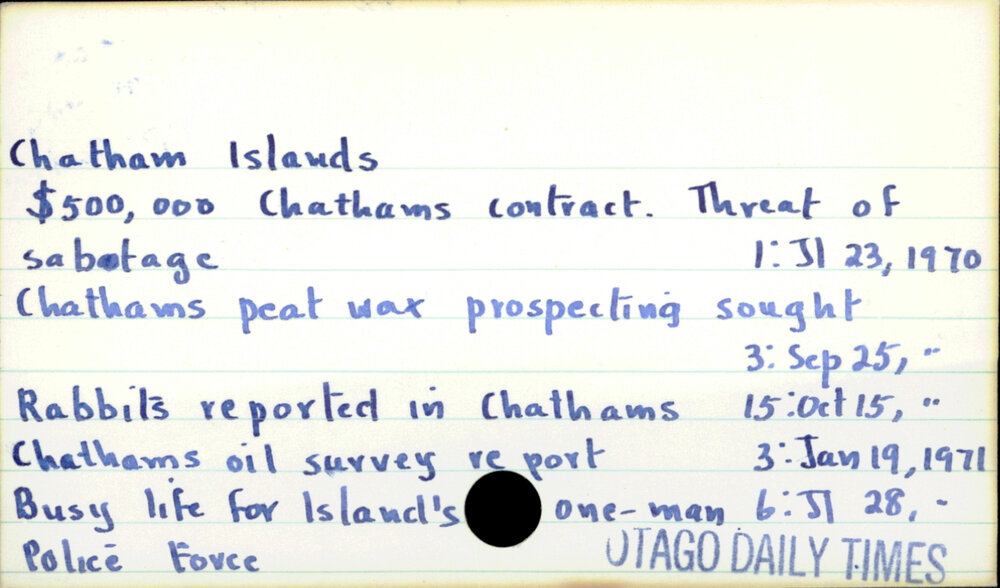 Chatham Islands
$500,000 Chathams contract. Threat of
sabotage 1: Jl 23, 1970
Chathams peat wax prospecting sought
3: Sep 25, "
Rabbits reported in Chathams 15: Oct 15, "
Chathams oil survey report 3: Jan 19, 1971
Busy life for Island's one-man 6: Jl 28, "
Police Force
OTAGO DAILY TIMES